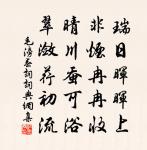 瑞日暉暉上
非煙冉冉收
晴川蚕可浴
翠潋荇初流
毛滂春詞詞典網集